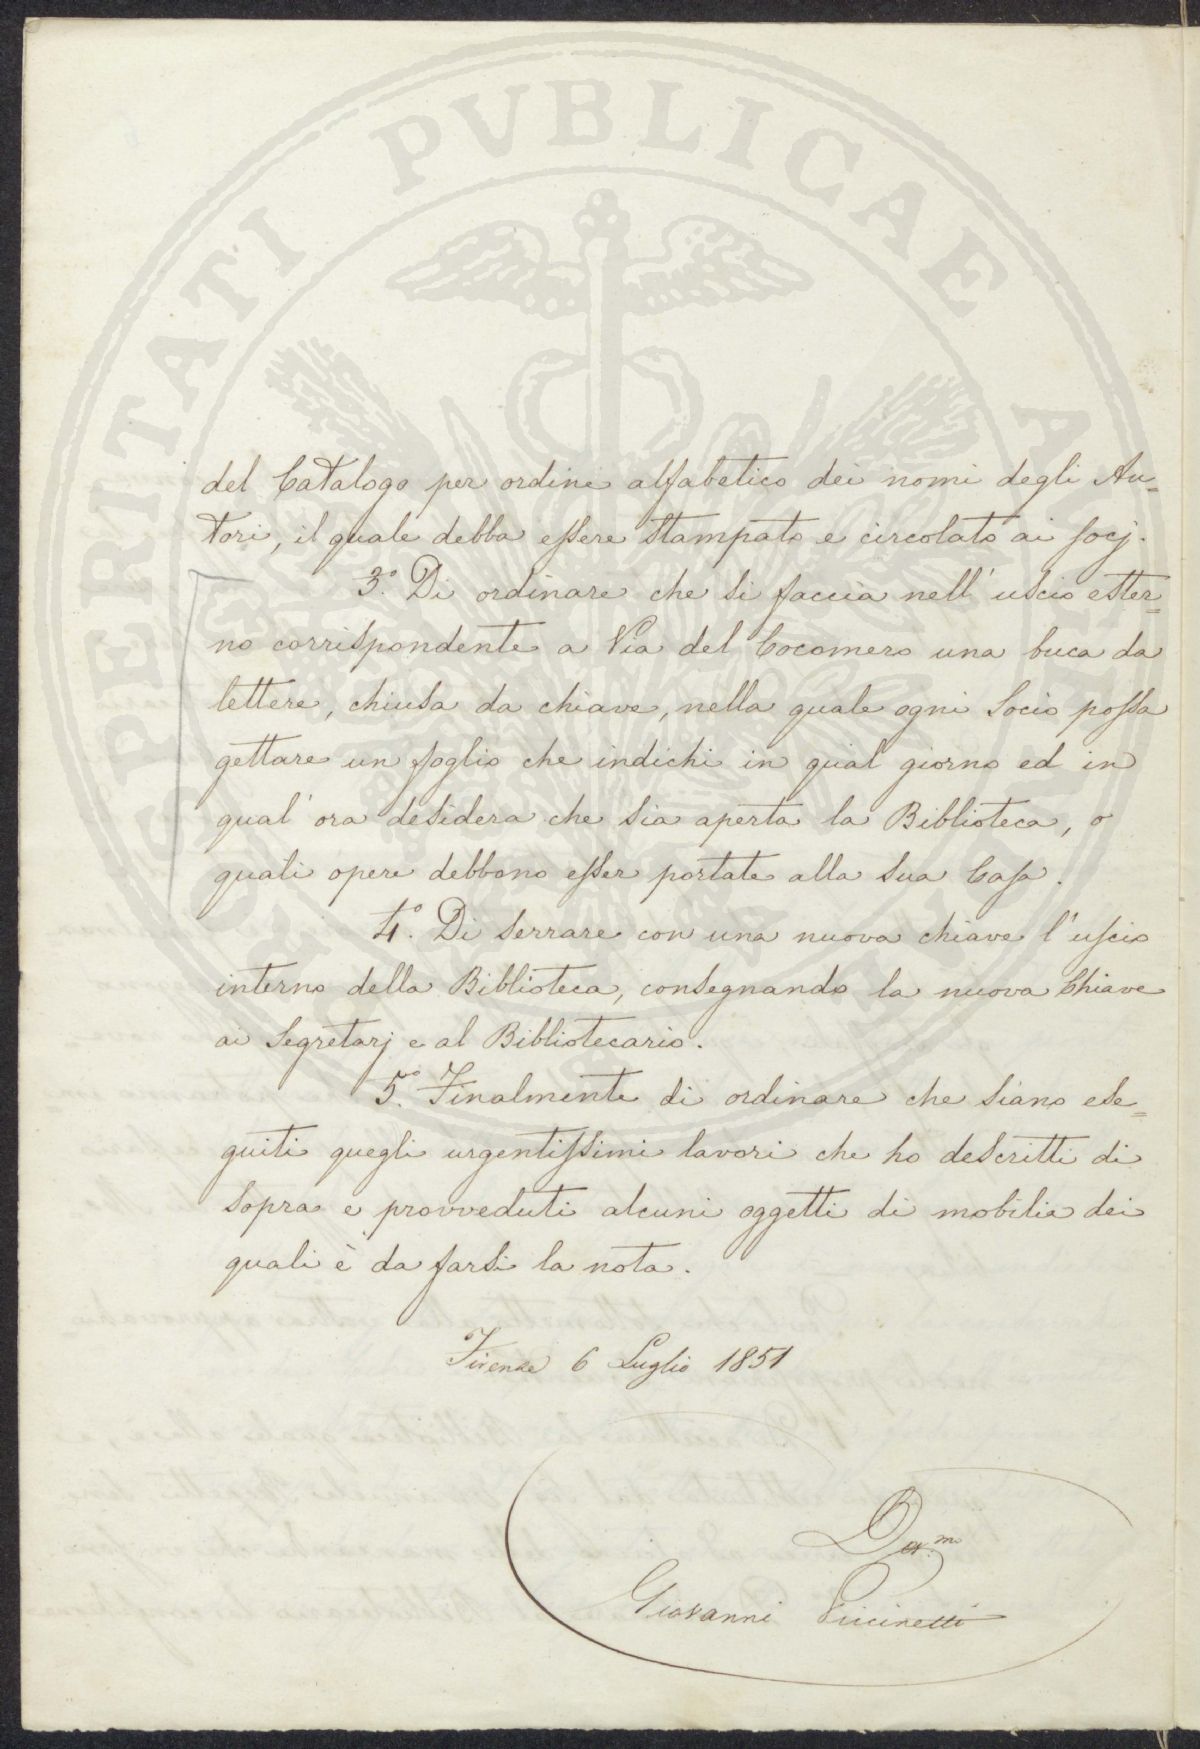 PROSPERITATI PVBLICAE AVGENDAE
del Catalogo per ordine alfabetico dei nomi degli Au=
tori, il quale debba essere stampato e circolato ai socj.
3.° Di ordinare che si faccia nell' uscio ester=
no corrispondente a Via del Cocomero una buca da
lettere, chiusa da chiave, nella quale ogni Socio possa
gettare un foglio che indichi in qual giorno ed in
qual' ora desidera che sia aperta la Biblioteca, o
quali opere debbono esser portate alla sua Casa.
4.° Di serrare con una nuova chiave l'uscio
interno della Biblioteca, consegnando la nuova Chiave
ai Segretarj e al Bibliotecario.
5.° Finalmente di ordinare che siano ese=
guiti quegli urgentissimi lavori che ho descritti di
sopra e provveduti alcuni oggetti di mobilia dei
quali è da farsi la nota.
Firenze 6 Luglio 1851
Giovanni